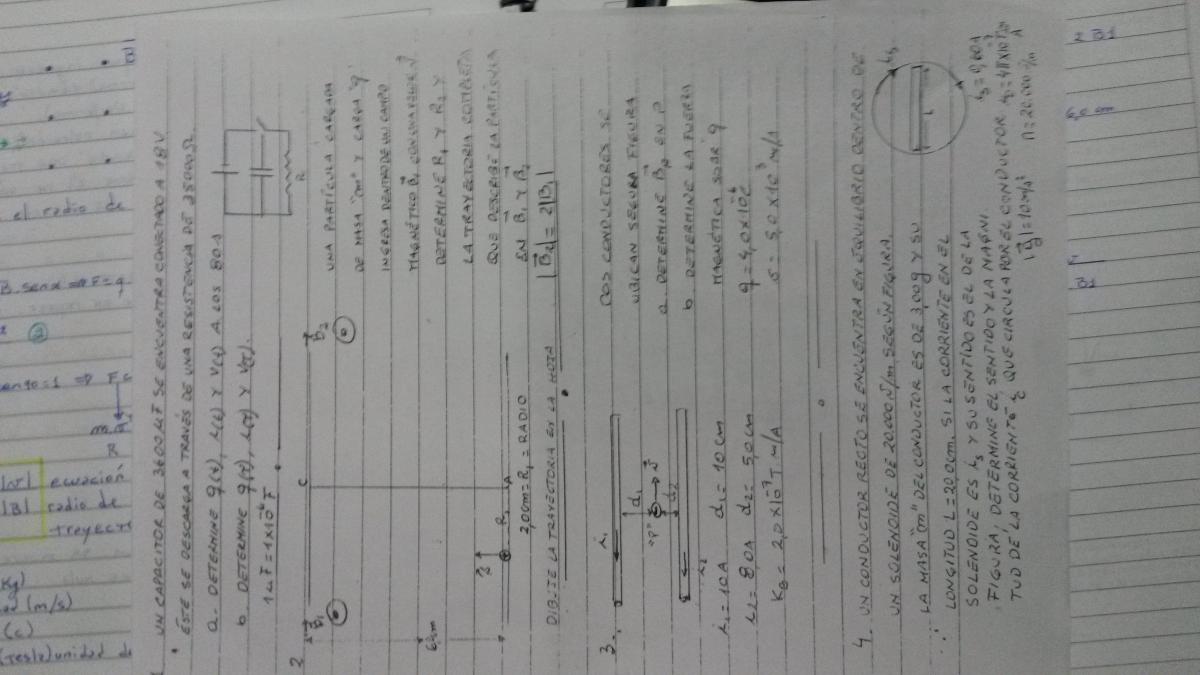 UN CAPACITOR DE 3600 µF SE ENCUENTRA CONECTADO A 18V
ESTE SE DESCARGA A TRAVÉS DE UNA RESISTENCIA DE 25000Ω
a. DETERMINE q(t), i(t) Y V(t) A LOS 80 s
b. DETERMINE q(t), i(t) Y V(t).
1 µF = 1x10⁻⁶ F
R
2
B₁
B₂
C
6,0cm
R₁
A
2,00cm = R₁ = RADIO
UNA PARTÍCULA CARGADA
DE MASA "m" Y CARGA "q"
INGRESA DENTRO DE UN CAMPO
MAGNÉTICO B₁
DETERMINE R₁ Y R₂ Y
LA TRAYECTORIA COMPLETA
QUE DESCRIBE LA PARTÍCULA
EN B₁ Y B₂
|B₂| = 2|B₁|
DIBUJE LA TRAYECTORIA EN LA HOJA
3.
i₁
"P"
d₁
d₂
i₂
DOS CONDUCTORES SE
UBICAN SEGÚN FIGURA
a DETERMINE Bp EN P
b DETERMINE LA FUERZA
MAGNÉTICA SOBRE q
q = 4,0x10⁻⁶C
v = 5,0 x10³ m/s
i₁ = 10A d₁ = 10cm
i₂ = 8,0A d₂ = 5,0cm
KB = 2,0x10⁻⁷ T m/A
4. UN CONDUCTOR RECTO SE ENCUENTRA EN EQUILIBRIO DENTRO DE
UN SOLENOIDE DE 20.000 N/m SEGÚN FIGURA.
LA MASA "m" DEL CONDUCTOR ES DE 3,00g Y SU
LONGITUD L = 20,0cm. SI LA CORRIENTE EN EL
SOLENOIDE ES is Y SU SENTIDO ES EL DE LA
FIGURA, DETERMINE EL SENTIDO Y LA MAGNI
TUD DE LA CORRIENTE ic QUE CIRCULA POR EL CONDUCTOR
is
L
|g| = 10 m/s²
n = 20.000 N/m
B
el radio de
B. senx ⇒ F = q
2
sen 90 = 1 ⇒ Fc
R
|v| ecuación
|B| radio de
trayect
Kg)
(m/s)
(C)
(tesla) unidad de
2 B1
6,0 cm
B2